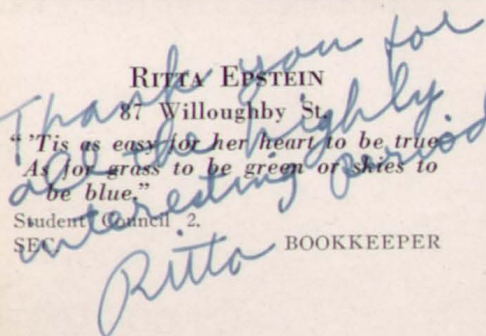 RITTA EPSTEIN
87 Willoughby St.
" 'Tis as easy for her heart to be true
As for grass to be green or skies to
be blue."
Student Council 2.
SEC.
BOOKKEEPER
Thank you for
all the highly
interesting period
Ritta